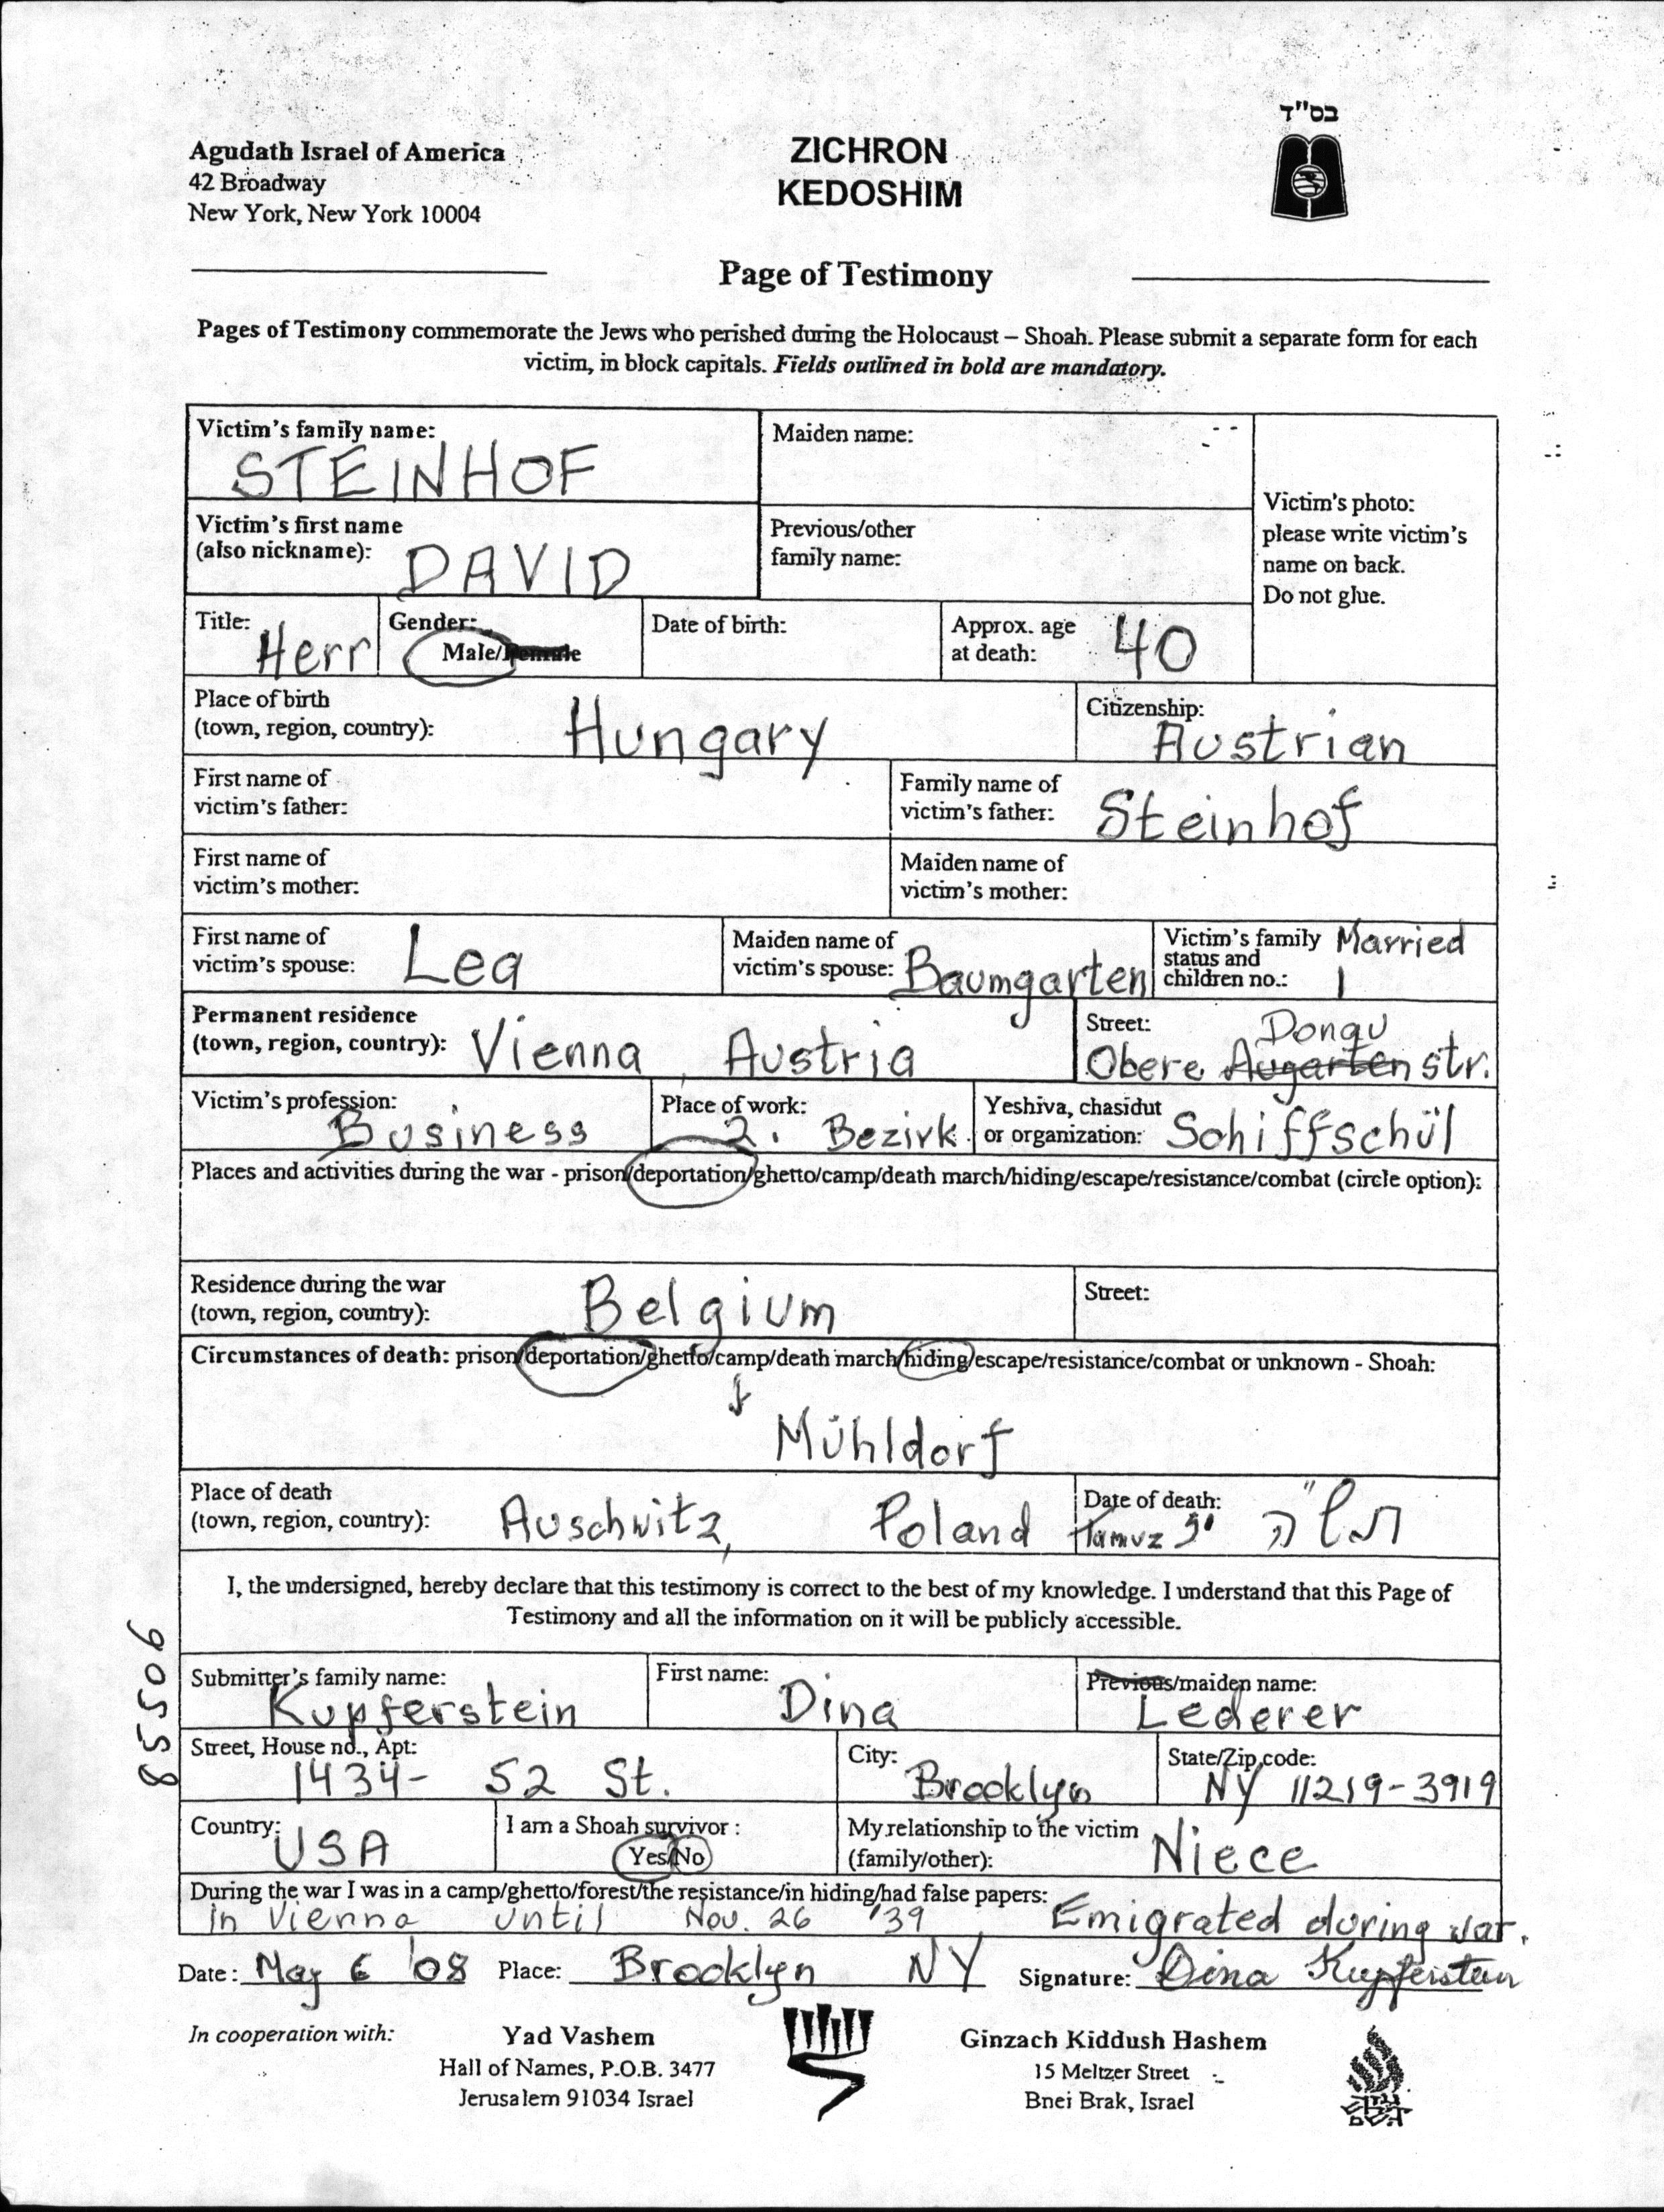 בס"ד
Agudath Israel of America
42 Broadway
New York, New York 10004
ZICHRON
KEDOSHIM
Page of Testimony
Pages of Testimony commemorate the Jews who perished during the Holocaust – Shoah. Please submit a separate form for each
victim, in block capitals. Fields outlined in bold are mandatory.
Victim's family name: STEINHOF
Maiden name:
Victim's photo:
please write victim's
name on back.
Do not glue.
Victim's first name
(also nickname): DAVID
Previous/other
family name:
Title: Herr
Gender:
Male/Female
Date of birth:
Approx. age
at death: 40
Place of birth
(town, region, country): Hungary
Citizenship: Austrian
First name of
victim's father:
Family name of
victim's father: Steinhof
First name of
victim's mother:
Maiden name of
victim's mother:
First name of
victim's spouse: Lea
Maiden name of
victim's spouse: Baumgarten
Victim's family status and children no.: Married
1
Permanent residence
(town, region, country): Vienna, Austria
Street: Donau
Obere Augarten str.
Victim's profession: Business
Place of work: 2. Bezirk
Yeshiva, chasidut
or organization: Schiffschül
Places and activities during the war - prison/deportation/ghetto/camp/death march/hiding/escape/resistance/combat (circle option):
Residence during the war
(town, region, country): Belgium
Street:
Circumstances of death: prison/deportation/ghetto/camp/death march/hiding/escape/resistance/combat or unknown - Shoah:
Mühldorf
Place of death
(town, region, country): Auschwitz, Poland
Date of death:
Tamuz תש"ה
I, the undersigned, hereby declare that this testimony is correct to the best of my knowledge. I understand that this Page of
Testimony and all the information on it will be publicly accessible.
855506
Submitter's family name: Kupferstein
First name: Dina
Previous/maiden name: Lederer
Street, House no., Apt: 1434- 52 St.
City: Brooklyn
State/Zip code: NY 11219-3919
Country: USA
I am a Shoah survivor :
Yes/No
My relationship to the victim
(family/other): Niece
During the war I was in a camp/ghetto/forest/the resistance/in hiding/had false papers:
In Vienna until Nov. 26 '39 Emigrated during war.
Date: May 6 '08 Place: Brooklyn NY Signature: Dina Kupferstein
In cooperation with:
Yad Vashem
Hall of Names, P.O.B. 3477
Jerusalem 91034 Israel
Ginzach Kiddush Hashem
15 Meltzer Street
Bnei Brak, Israel